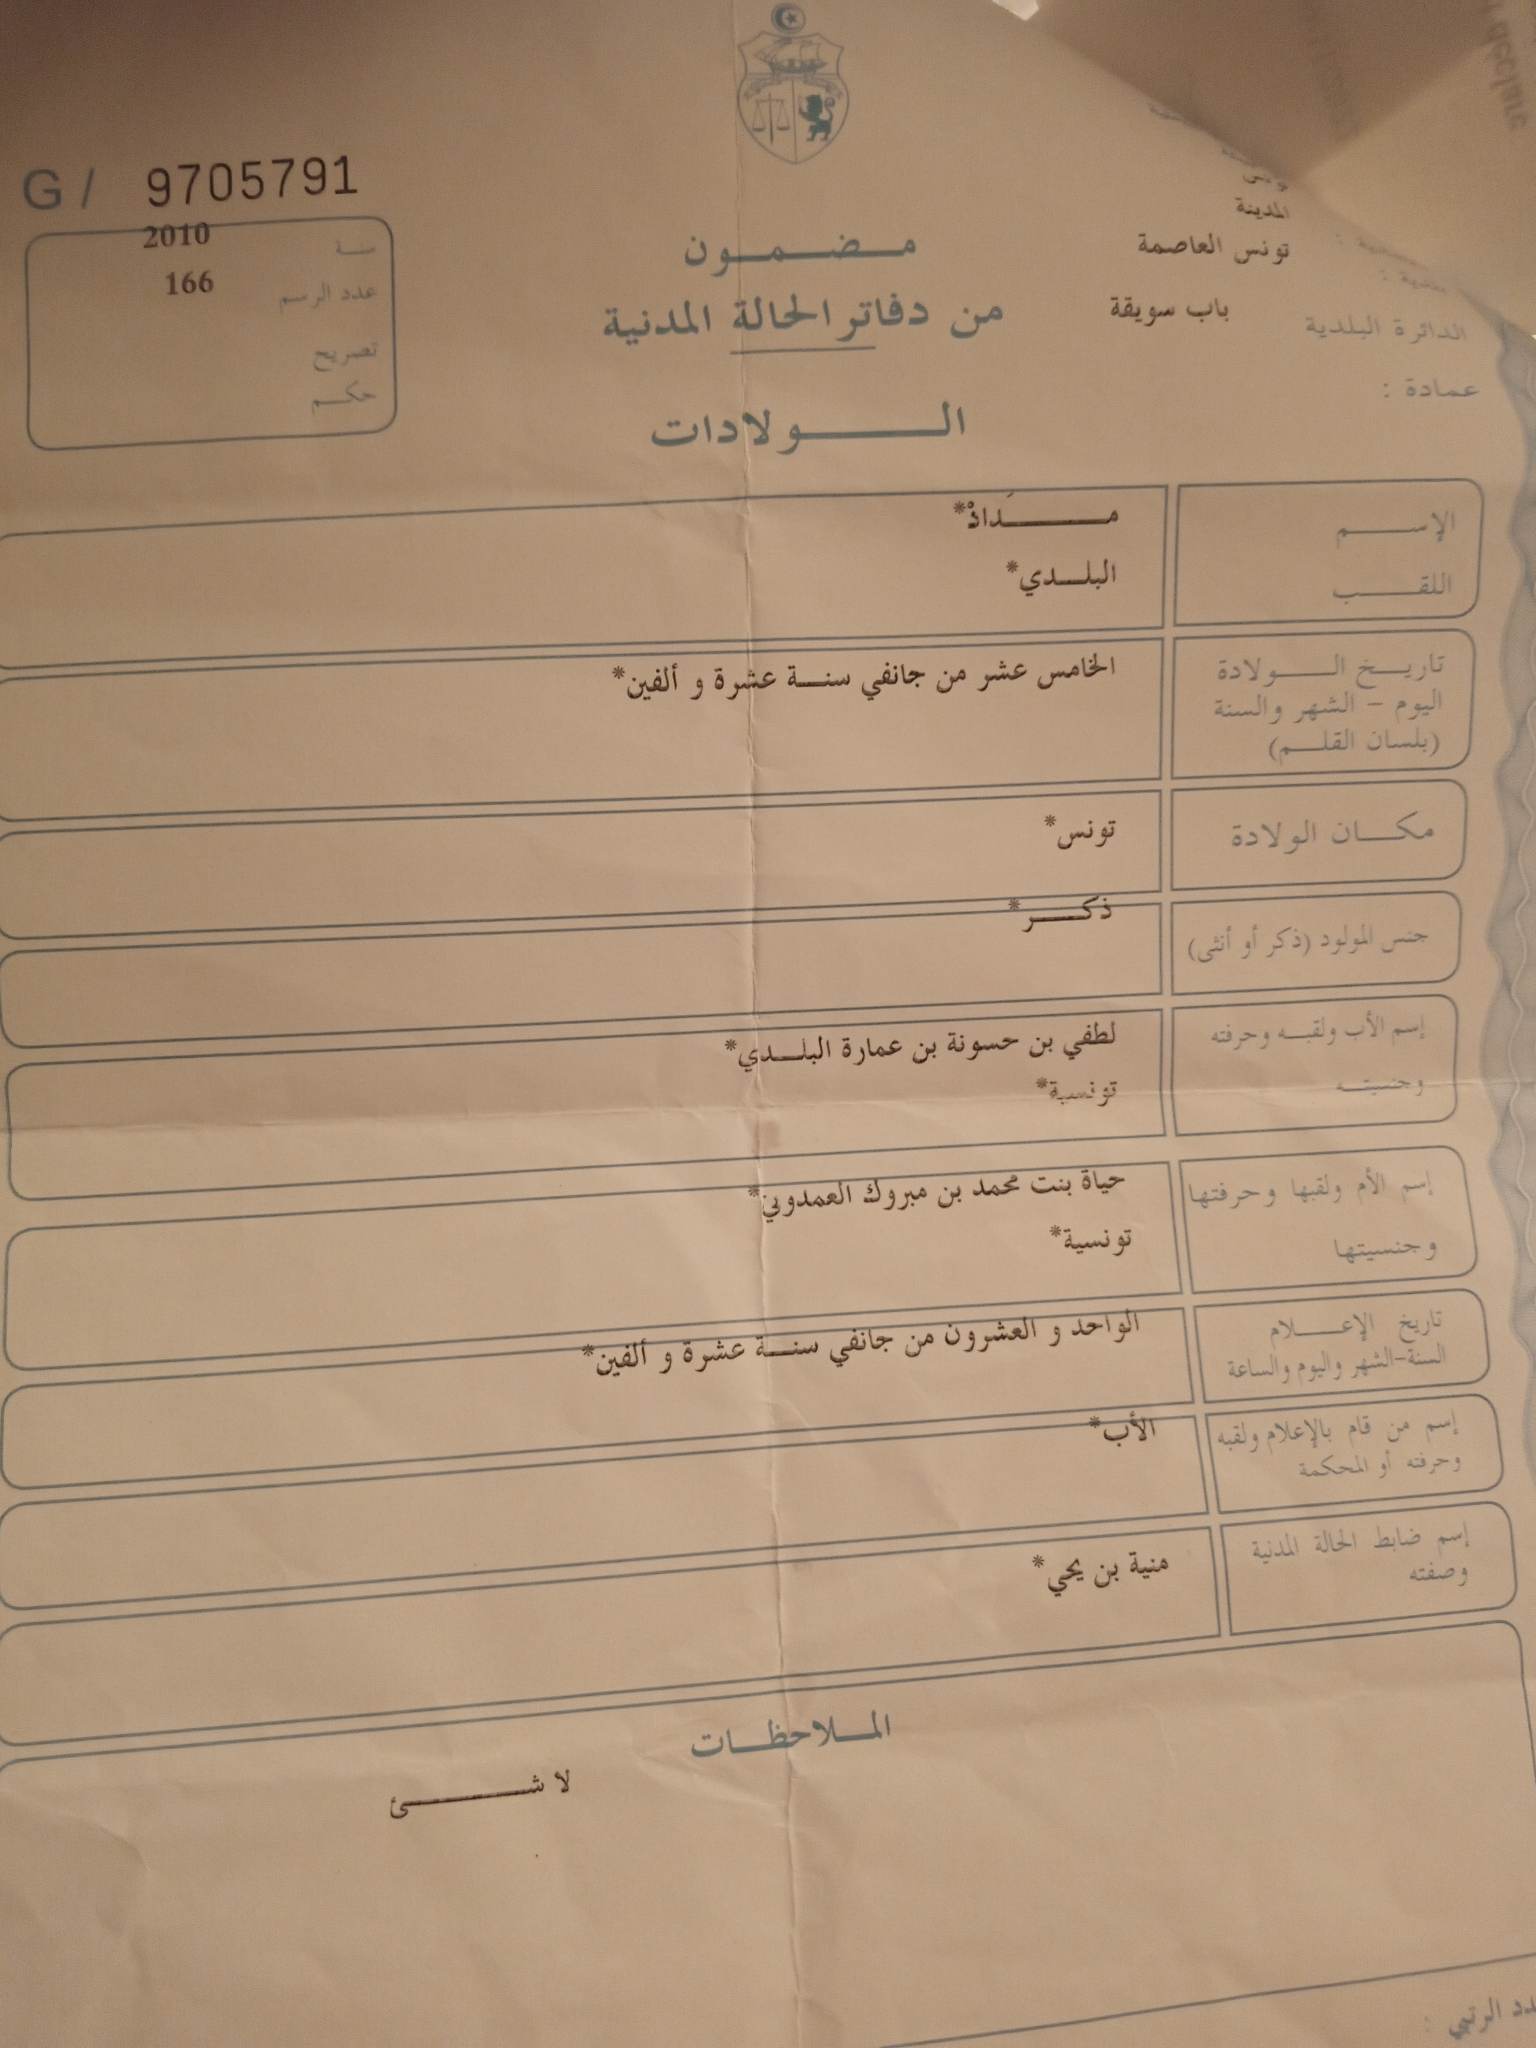 G / 9705791
سنة 2010
عدد الرسم 166
تصريح
حكم
مضمون
من دفاتر الحالة المدنية
الولادات
المدينة
تونس العاصمة
الدائرة البلدية باب سويقة
عمادة :
الإسم مَدادْ*
اللقب البلدي*
تاريخ الولادة الخامس عشر من جانفي سنة عشرة و ألفين*
اليوم - الشهر والسنة
(بلسان القلم)
مكان الولادة تونس*
جنس المولود (ذكر أو أنثى) ذكر*
إسم الأب ولقبه وحرفته لطفي بن حسونة بن عمارة البلدي*
وجنسيته تونسية*
إسم الأم ولقبها وحرفتها حياة بنت محمد بن مبروك العمدوني*
وجنسيتها تونسية*
تاريخ الإعلام الواحد و العشرون من جانفي سنة عشرة و ألفين*
السنة-الشهر واليوم والساعة
إسم من قام بالإعلام ولقبه الأب*
وحرفته أو المحكمة
إسم ضابط الحالة المدنية منية بن يحي*
وصفته
الملاحظات
لا شئ
الرتبي :